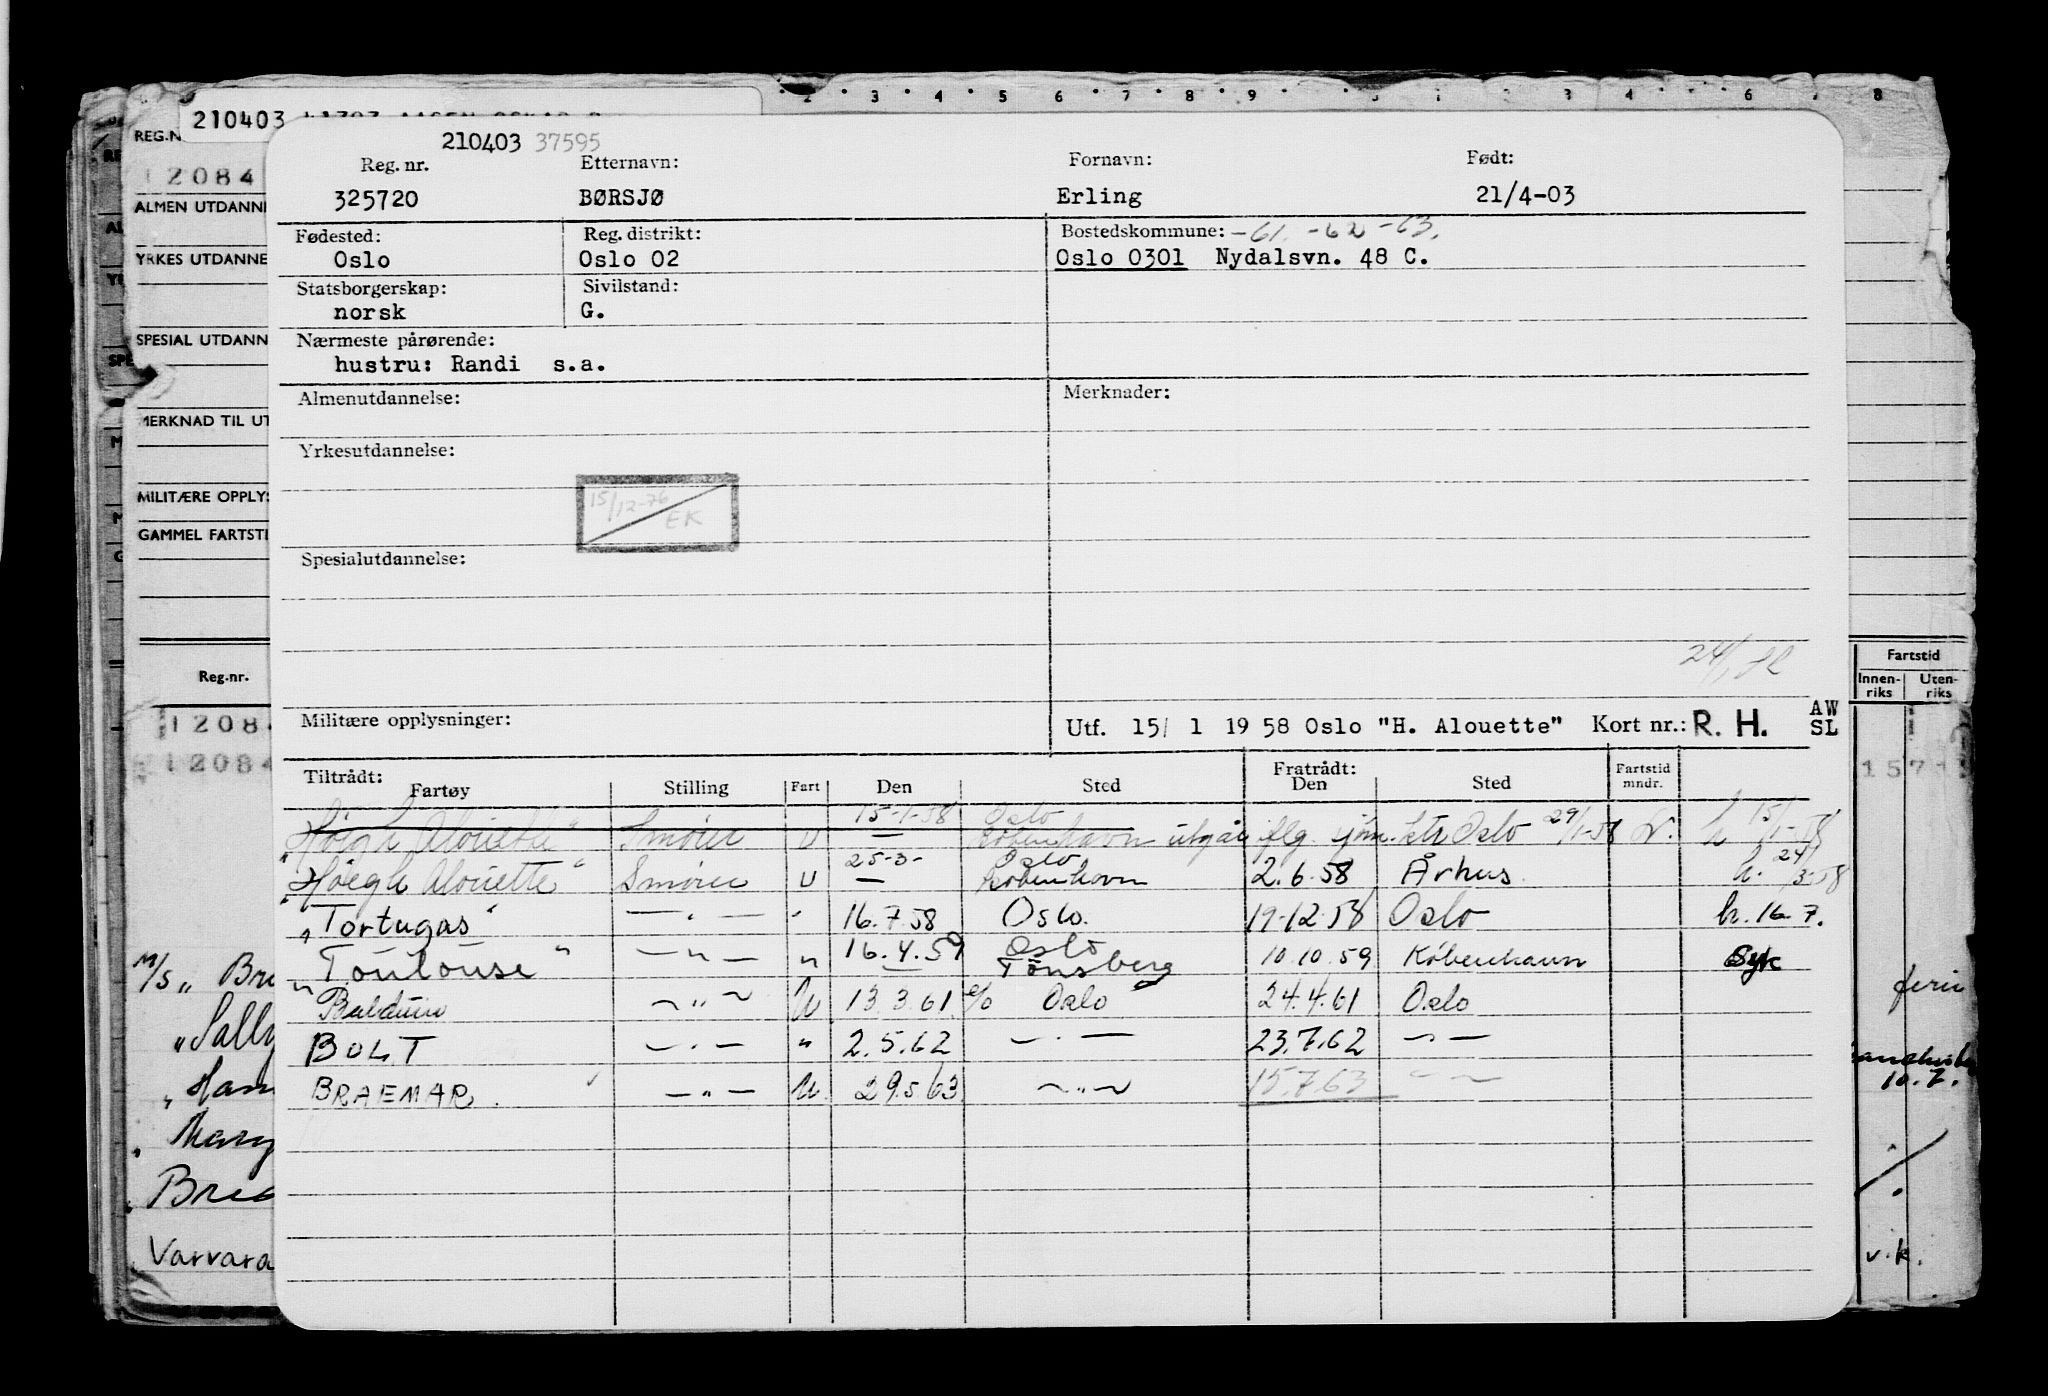 2 3 4 5 6 7 8 9 1 2 3 4 6 7 8
210403
REG.N
210403 37595
Reg. nr. Etternavn: Fornavn: Født:
12084
325720 BØRSJØ Erling 21/4-03
ALMEN UTDANNE
Fødested: Reg. distrikt: Bostedskommune: -61. -62 -63.
YRKES UTDANNE
Oslo Oslo 02 Oslo 0301 Nydalsvn. 48 C.
Statsborgerskap: Sivilstand:
norsk G.
SPESIAL UTDANN
Nærmeste pårørende:
hustru: Randi s.a.
Almenutdannelse: Merknader:
MERKNAD TIL UT
Yrkesutdannelse:
MILITÆRE OPPLYS
15/12-76
EK
GAMMEL FARTSTI
Spesialutdannelse:
24/1
Reg.nr. Fartstid
Innen-riks Uten-riks
Militære opplysninger: Utf. 15/ 1 19 58 Oslo "H. Alouette" Kort nr.: R. H. AW SL
1208
12084 157
Tiltrådt: Fratrådt:
Fartøy Stilling Fart Den Sted Den Sted Fartstid mndr.
15-1-58 Oslo
"Høegh Alouette" Smører U — København utgår flg. sjøm.ktr Oslo 29/1-58 h 15/1-58
25-3- Oslo
"Høegh Alouette" Smører U — København 2.6.58 Århus. h. 24/3-58
"Tortugas" — " — " 16.7.58 Oslo. 19-12-58 Oslo h. 16.7.
"Toulouse" — " — " 16.4.59 Oslo Tønsberg 10.10.59 København Syk
M/S " Br
Balduin — " — U 13.3.61 e/o Oslo 24.4.61 Oslo
feri
"Sally
BOLT — " — " 2.5.62 — " — 23.7.62 — " —
10.7.
BRAEMAR " — " — U 29.5.63 — " — 15.7.63 — " —
Varvara v.k.